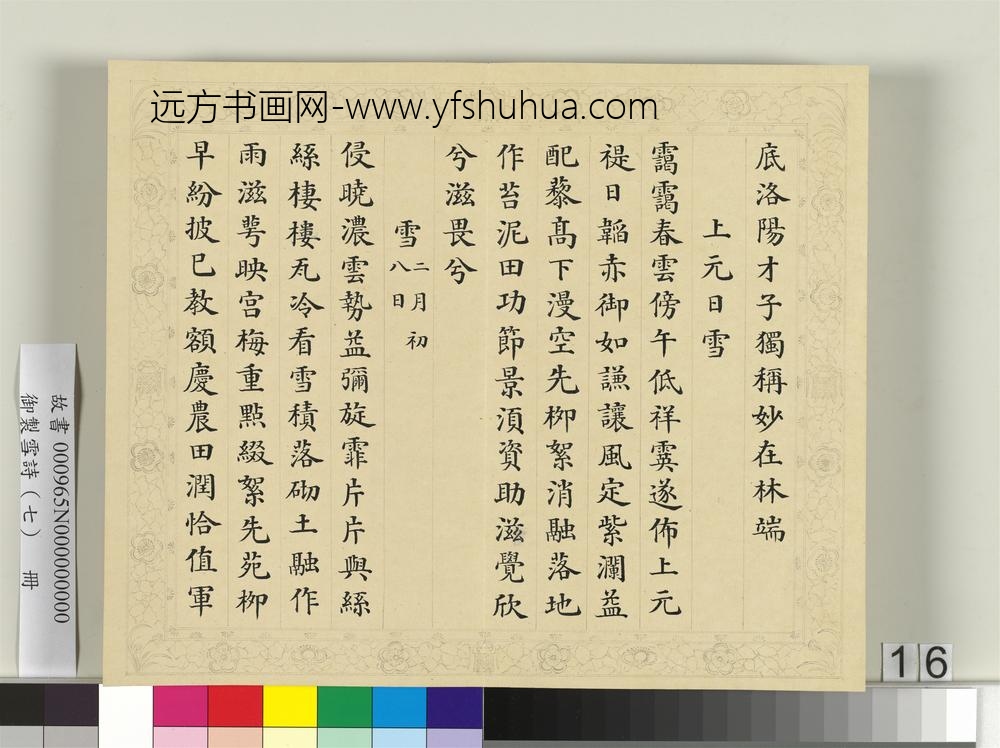 远方书画网-www.yfshuhua.com
底洛陽才子獨稱妙在林端
上元日雪
靄靄春雲傍午低祥霙遂佈上元
禔日韜赤御如謙讓風定紫瀾益
配藜髙下漫空先栁絮消融落地
作苔泥田功節景湏資助滋覺欣
兮滋畏兮
雪二月初八日
侵曉濃雲勢益彌旋霏片片與絲
絲棲樓瓦冷看雪積落砌土融作
雨滋萼映宫梅重點綴絮先苑栁
早紛披已教額慶農田潤恰值軍
故書 000965N000000000
御製雪詩（七） 冊
16